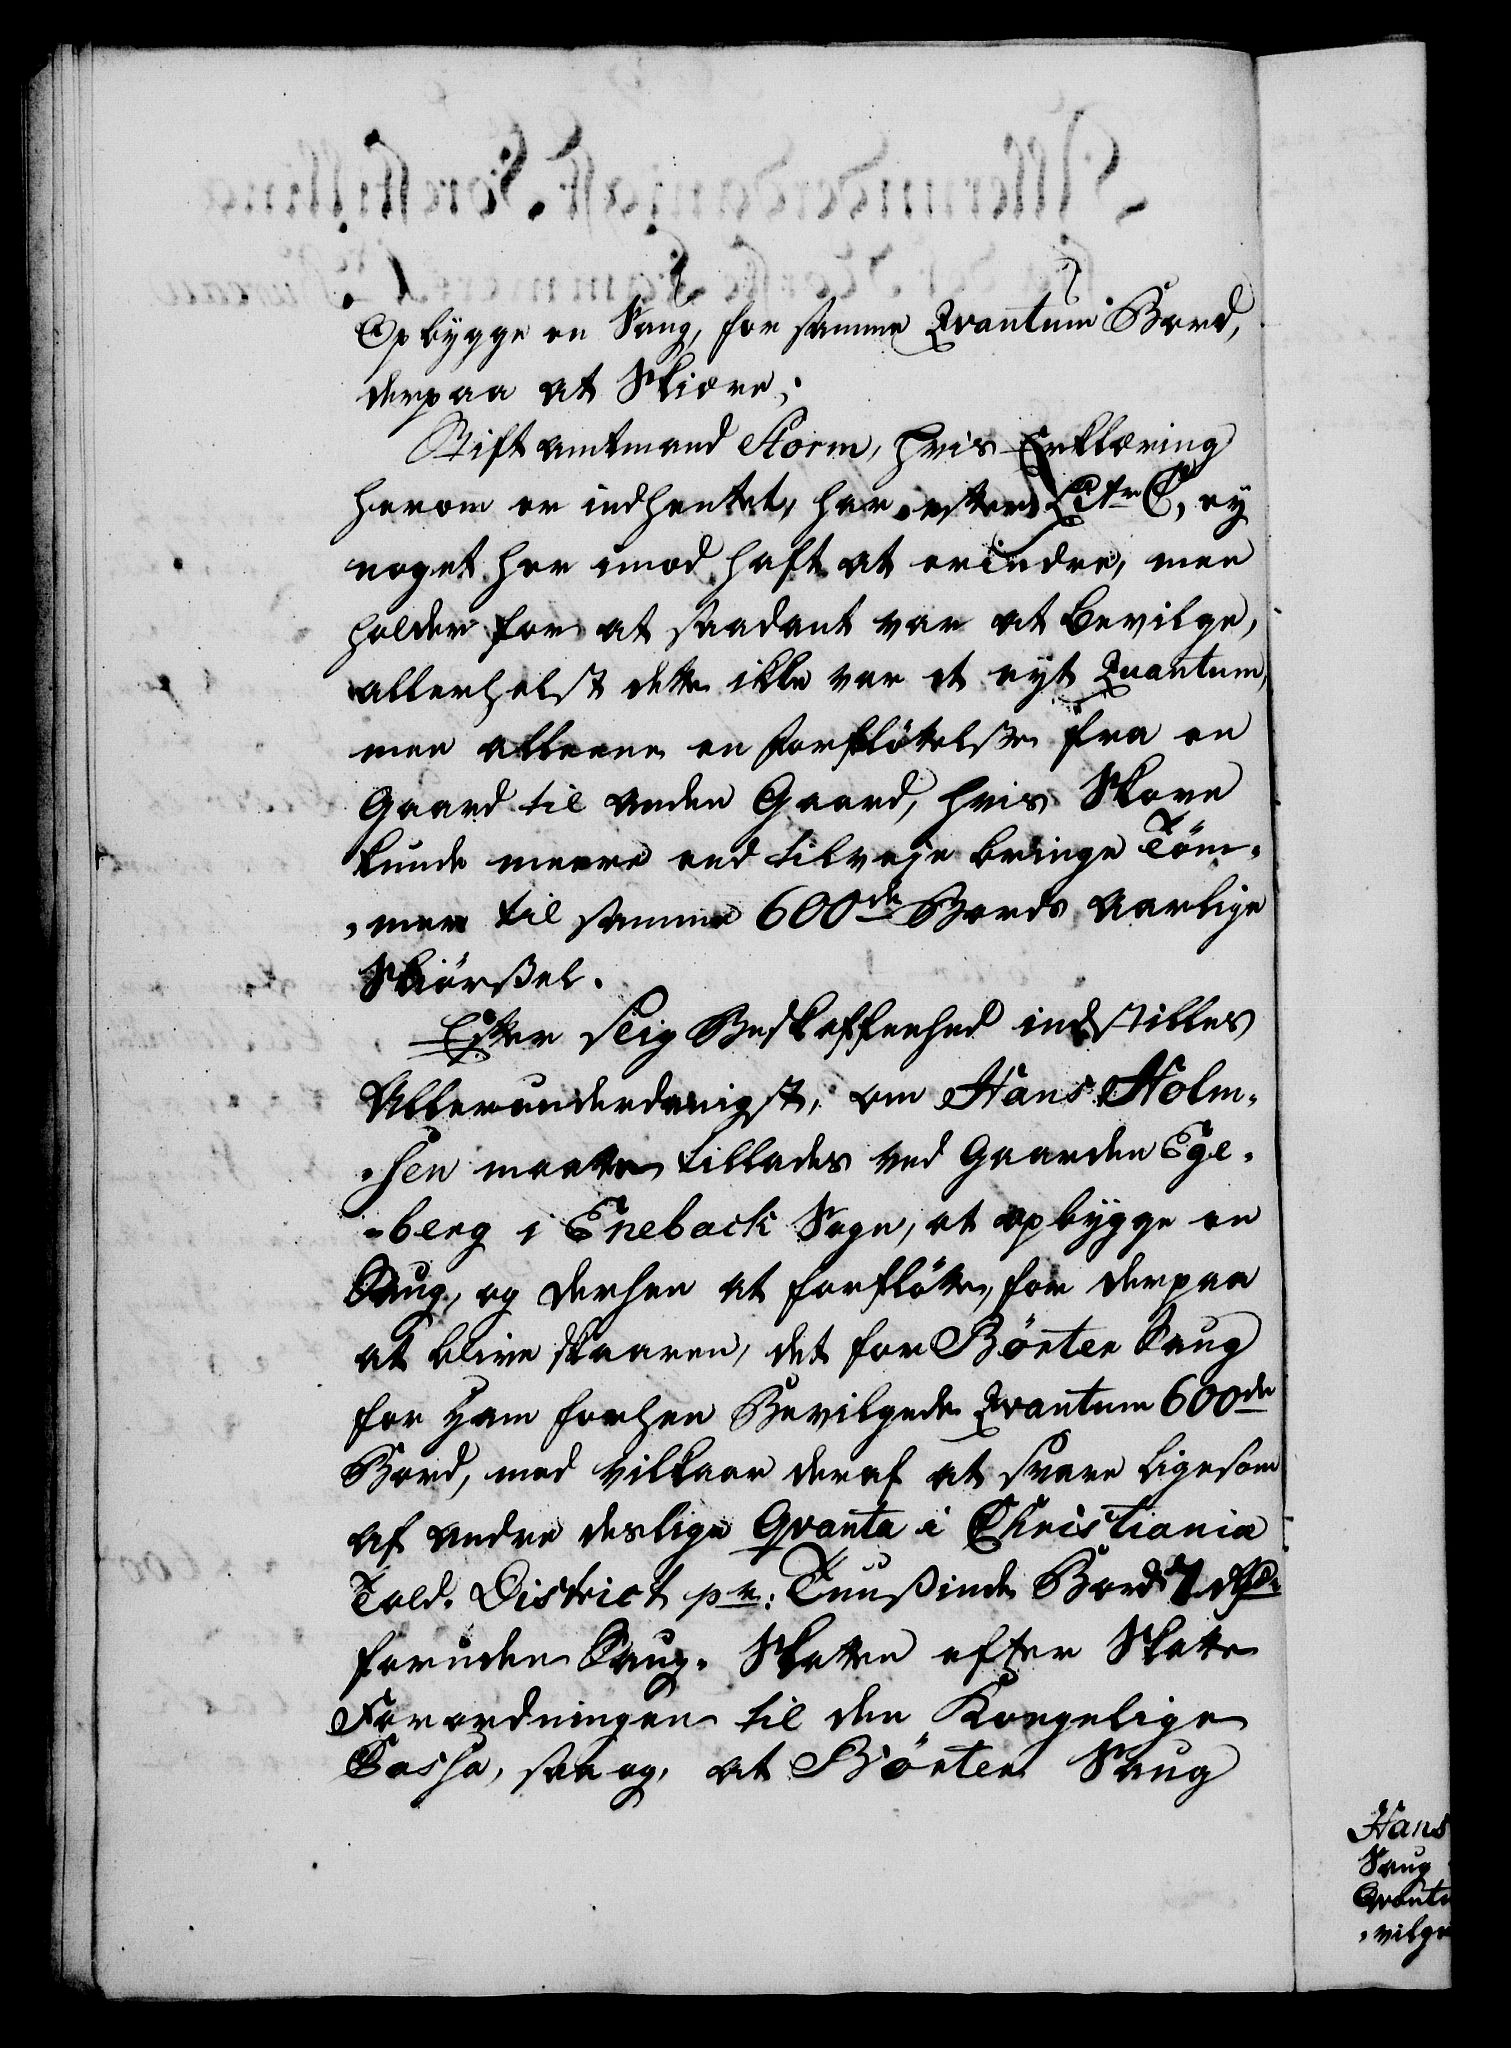 Opbygge en Saug, for samme Qvantum Bord,
derpaa at Skiære;
Stiftamtmand Storm, hvis Erklæring
herom er indhentet, har efter Litr: C, ey
noget her imod haft at erindre, men
holder for at saadant var at bevilge,
allerhelst dette ikke var et nyt Qvantum,
men alleene en forfløttelse fra en
Gaard til anden Gaard, hvis Skove
kunde meere end tilveje bringe Tøm-
-mer til samme 600de Bords aarlige
Skiørßel.
Efter slig Beskaffenhed indstilles
Allerunderdanigst, om Hans Holm-
-sen maatte tillades ved Gaarden Ege-
-berg i Eneback Sogn, at opbygge en
Saug, og derhen at forfløtte, for derpaa
at blive skaaren, det for Børter Saug
for ham forhen Bevilgede Qvantum 600de
Bord, med vilkaar deraf at svare ligesom
af andre deslige Qvanta i Christiania
Told-District pr: Tuußinde Bord 7 rd
foruden Saug-Skatten efter Skatte
Forordningen til den Kongelige
Cassa, saa og, at Børter Saug
Hans
Saug
Qvantu
-vilge